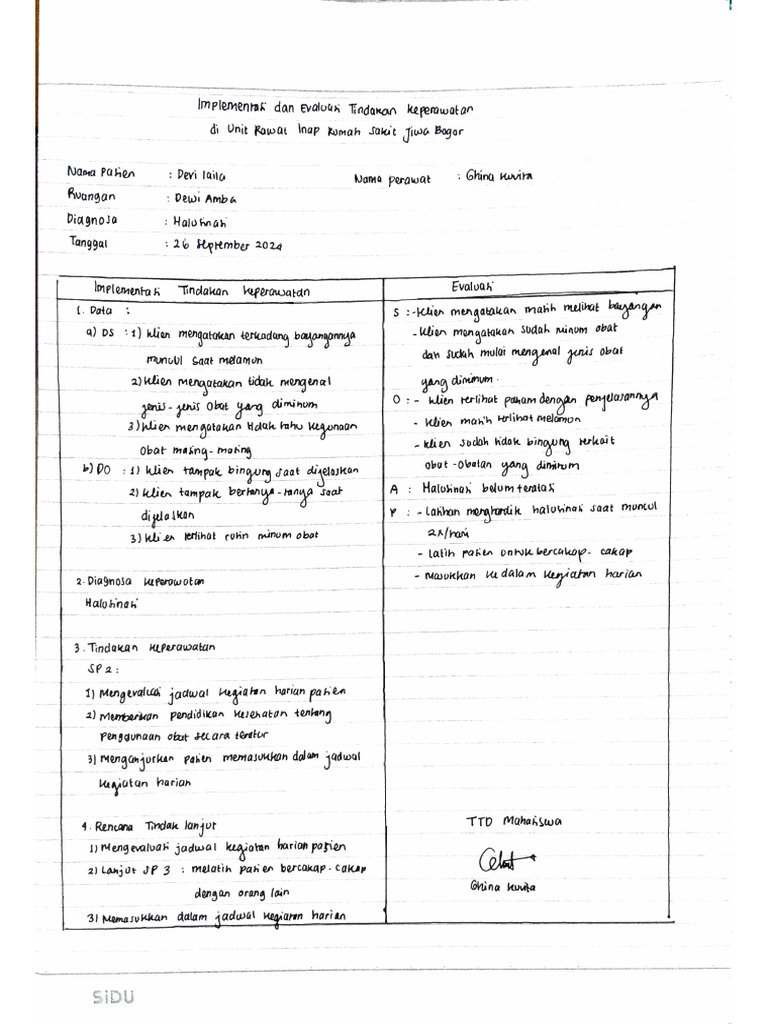 Implementasi dan Evaluasi Tindakan Keperawatan
di Unit Rawat Inap Rumah Sakit Jiwa Bogor
Nama Pasien : Devi laila
Nama perawat : Ghina Kurita
Ruangan : Dewi Amba
Diagnosa : Halusinasi
Tanggal : 26 September 2024
Implementasi Tindakan Keperawatan
1. Data :
a) DS : 1) Klien mengatakan terkadang bayangannya
muncul saat melamun
2) Klien mengatakan tidak mengenal
jenis-jenis obat yang diminum
3) Klien mengatakan tidak tahu kegunaan
obat masing-masing
b) DO : 1) Klien tampak bingung saat dijelaskan
2) Klien tampak bertanya-tanya saat
dijelaskan
3) Klien terlihat rutin minum obat
2. Diagnosa keperawatan
Halusinasi
3. Tindakan keperawatan
SP 2 :
1) Mengevaluasi jadwal kegiatan harian pasien
2) Memberikan pendidikan kesehatan tentang
penggunaan obat secara teratur
3) Menganjurkan pasien memasukkan dalam jadwal
kegiatan harian
4. Rencana Tindak lanjut
1) Mengevaluasi jadwal kegiatan harian pasien
2) Lanjut SP 3 : melatih pasien bercakap-cakap
dengan orang lain
3) Memasukkan dalam jadwal kegiatan harian
Evaluasi
S : - Klien mengatakan masih melihat bayangan
- Klien mengatakan sudah minum obat
dan sudah mulai mengenal jenis obat
yang diminum.
O : - Klien terlihat paham dengan penjelasannya
- Klien masih terlihat melamun
- Klien sudah tidak bingung terkait
obat-obatan yang diminum
A : Halusinasi belum teratasi
P : - Latihan menghardik halusinasi saat muncul
2x/hari
- latih pasien untuk bercakap-cakap
- Masukkan ke dalam kegiatan harian
TTD Mahasiswa
Ghina Kurita
SiDU